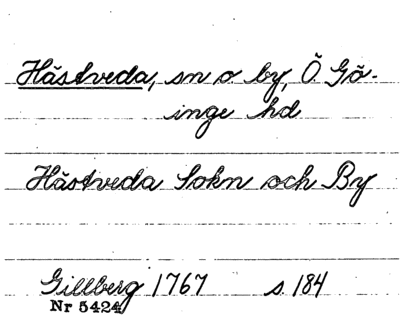 Hästveda, sn o by, Ö Gö-
inge hd
Hästveda Sokn och By
Gillberg 1767 s. 184
Nr 5424